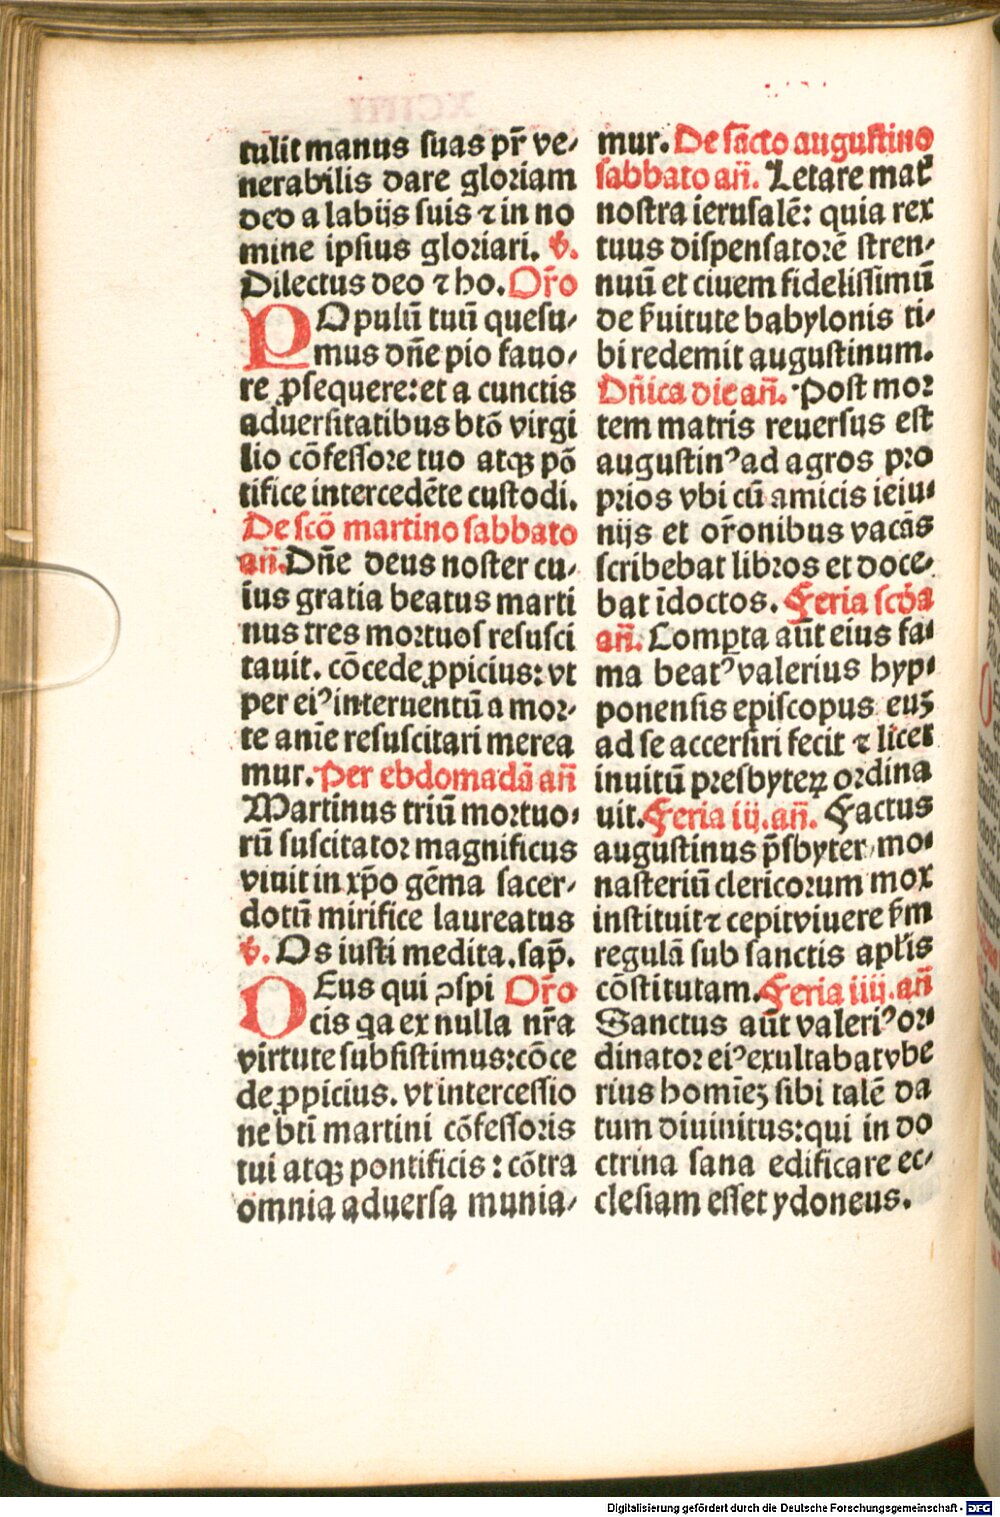 tulit manus suas pr̄ ve⸗
nerabilis dare gloriam
deo a labijs suis ⁊ in no
mine ipsius gloriari. v̄.
Dilectus deo ⁊ ho. Or̄o
POpulū tuū quesu⸗
mus dn̄e pio fauo⸗
re ꝓsequere: et a cunctis
aduersitatibus btō virgi
lio cōfessore tuo atqꝫ pō
tifice intercedēte custodi.
De scō martino sabbato
an̄. Dn̄e deus noster cu⸗
ius gratia beatus marti
nus tres mortuos resusci
tauit. cōcede ꝓpicius: vt
per eiꝰ interuentū a mor⸗
te anīe resuscitari merea
mur. Per ebdomadā an̄
Martinus triū mortuo⸗
rū suscitator magnificus
viuit in xp̄o gēma sacer⸗
dotū mirifice laureatus
v̄. Os iusti medita. sap̄.
DEus qui ↄspi Or̄o
cis qa ex nulla nr̄a
virtute subsistimus: cōce
de ꝓpicius. vt intercessio
ne bti̅ martini cōfessoris
tui atqꝫ pontificis: cōtra
omnia aduersa munia⸗
mur. De sācto augustino
sabbato an̄. Letare mat̄
nostra ierusalē: quia rex
tuus dispensatorē stren⸗
nuū et ciuem fidelissimū
de ẜuitute babylonis ti⸗
bi redemit augustinum.
Dn̄ica die an̄. Post mor
tem matris reuersus est
augustinꝰ ad agros pro
prios vbi cū amicis ieiu⸗
nijs et or̄onibus vacās
scribebat libros et doce⸗
bat īdoctos. Feria scd̄a
an̄. Comꝑta aūt eius fa⸗
ma beatꝰ valerius hyp⸗
ponensis episcopus euꝫ
ad se accersiri fecit ⁊ licet
inuitū presbyteꝝ ordina
uit. Feria iij. an̄. Factus
augustinus p̄sbyter mo⸗
nasteriū clericorum mox
instituit ⁊ cepit viuere ẜm
regulā sub sanctis apl̄is
cōstitutam. Feria iiij. an̄
Sanctus aūt valeriꝰ or⸗
dinator eiꝰ exultabat vbe
rius homīeꝫ sibi talē da
tum diuinitus: qui in do
ctrina sana edificare ec⸗
clesiam esset ydoneus.
Digitalisierung gefördert durch die Deutsche Forschungsgemeinschaft - DFG